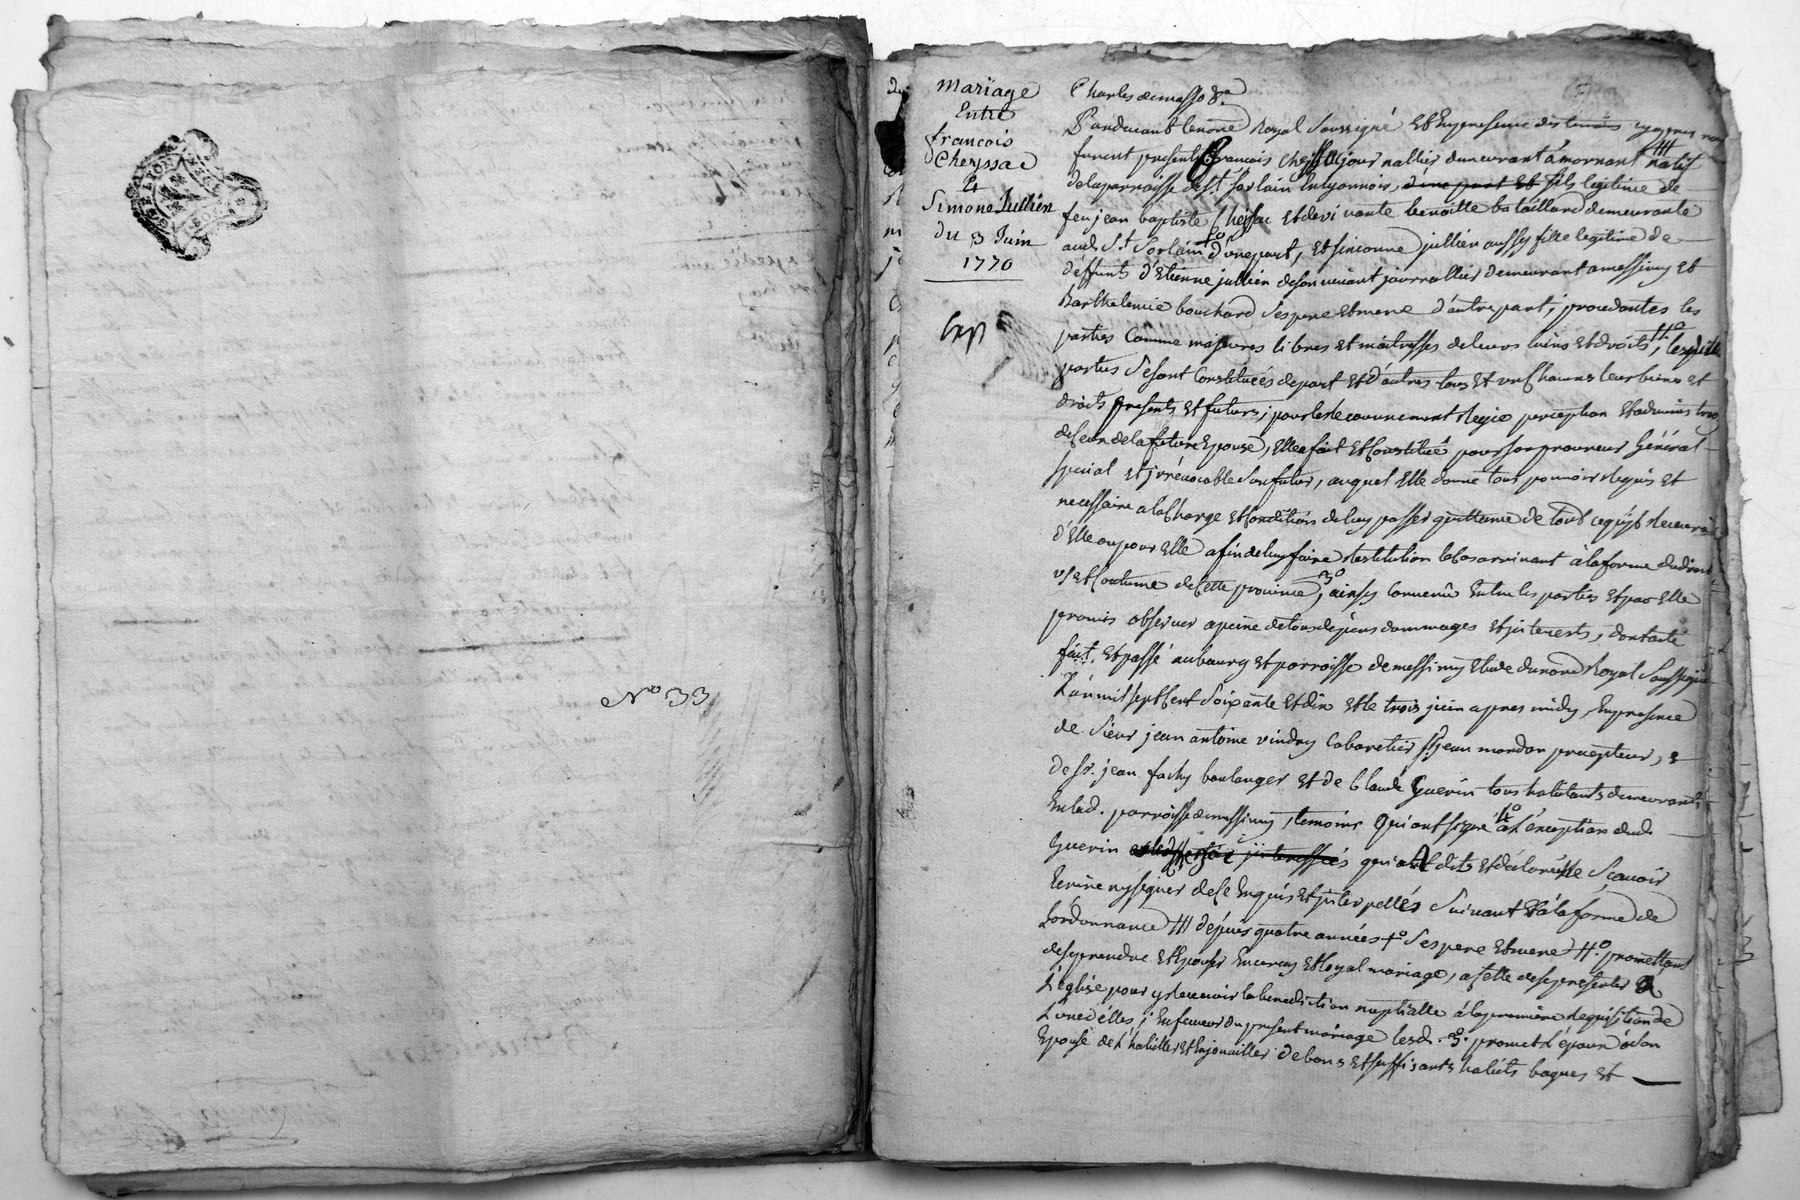 N° 33
mariage
Entre
françois
Cheyssac
Et
Simone Jullien
du 3 Juin
1770
Exp
Pardevant le no.re Royal soussigné Et En presence des temoins
furent presents françois journallier demeurant à mornant /// natif
de la parroisse de St. Sorlain En lyonnois, d'une part Et fils legitime de
feu jean baptiste Et de vivante benoitte bataillard demeurante
aud. St. Sorlain +° d'une part, Et simonne jullien aussy fille legitime de
deffunts d'Etienne jullien de son vivant journallier demeurant a messimy Et
Barthelemie bouchard ses pere et mere d'autre part; procedantes les
parties Comme majeures libres et maitresses de leurs biens Et droits,
parties Se sont Constituées de part Et d'autres tous Et un Chacuns leurs biens et
droits presents Et futurs; pour le recouvrement Regie perception Et
de Ceux de la future Epouse, Elle a fait Et Constitué pour son procureur Général
spécial et irrévocable son futur, auquel Elle donne tous pouvoir Requis Et
necessaire a la Charge Et Condition de luy passer quittance de tout ce qu'il
d'Elle ou pour Elle afin de luy faire restitution le Cas arrivant à la forme du droit
us et Coutume de Cette province, 3° ainsy Convenû Entre les parties Et par Elle
promis observer a peine de tous depens dommages et interests, dont acte
fait Et passé au bourg et parroisse de messimy Royal soussigné
L'an mil sept Cent soixante Et dix Et le trois juin apres midy, En presence
de sieur jean antoine vindry Cabaretier, Sr. jean mondon precepteur,
de Sr. jean fachy boulanger Et de Claude Guerin tous habitants demeurants
En lad. parroisse de messimy, temoins Qui ont signé 4° à L'exception dud.
Guerin qui ont dit Et déclaré ne Scavoir
Ecrire ny signer de Ce Enquis et interpellés Suivant Et à la forme de
L'ordonnance /// depuis quatre années +° ses pere et mere H° promettans
de se prendre Et Epouser En vray Et loyal mariage, a cette
L'église pour y recevoir la benediction nuptialle à la premiere requisition de
L'une d'Elles; En faveur du present mariage led. 3° promet L'epoux à son
Epouse de L'habiller Et Enjouailler de bons Et suffisants habits bagues Et